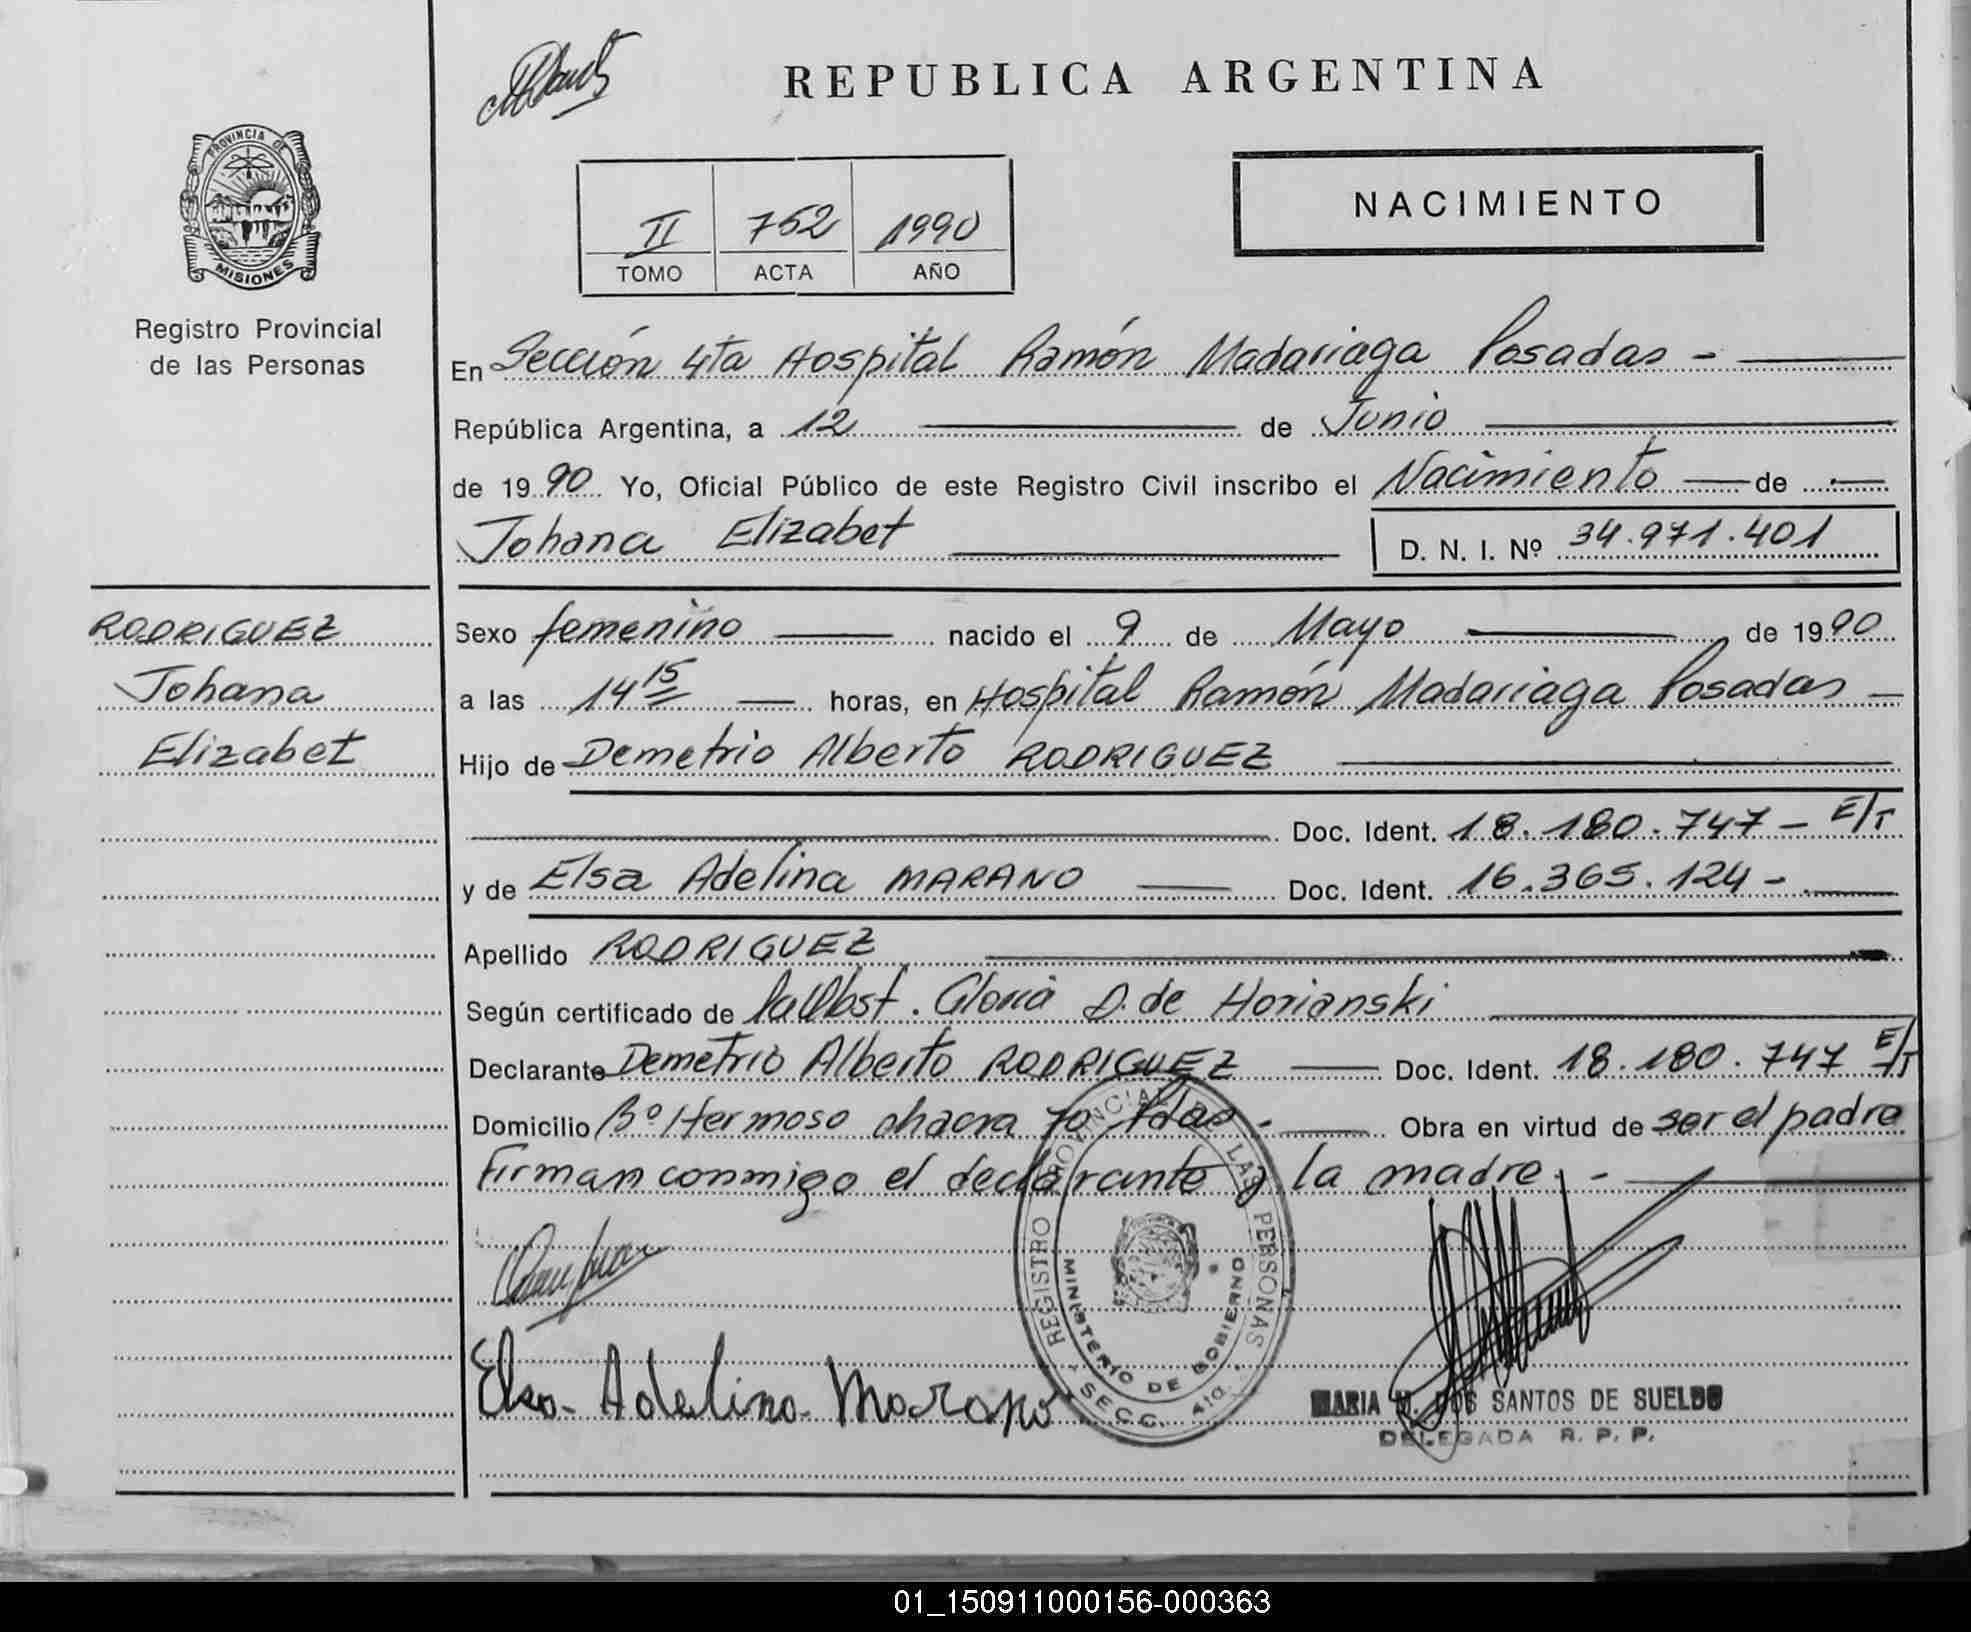 REPUBLICA ARGENTINA
PROVINCIA DE
MISIONES
Registro Provincial
de las Personas
NACIMIENTO
II 752 1990
TOMO ACTA AÑO
En Sección 4ta Hospital Ramón Madariaga Posadas -
República Argentina, a 12 de Junio
de 1990 Yo, Oficial Público de este Registro Civil inscribo el Nacimiento de
Johana Elizabet D. N. I. Nº 34.971.401
RODRIGUEZ
Johana
Elizabet
Sexo femenino nacido el 9 de Mayo de 1990
a las 14 15 horas, en Hospital Ramón Madariaga Posadas
Hijo de Demetrio Alberto RODRIGUEZ
Doc. Ident. 18.180.747 - E/T
y de Elsa Adelina MARANO Doc. Ident. 16.365.124 -
Apellido RODRIGUEZ
Según certificado de Gloria D. de Horianski
Declarante Demetrio Alberto RODRIGUEZ Doc. Ident. 18.180.747 E/T
Domicilio Bº Hermoso chacra 70 Pdas - Obra en virtud de ser el padre
Firman conmigo el declarante y la madre. -
REGISTRO PROVINCIAL DE LAS PERSONAS
MINISTERIO DE GOBIERNO
SECC. 4ta.
Elsa Adelina Marano
MARIA M. DOS SANTOS DE SUELDO
DELEGADA R. P. P.
01_150911000156-000363